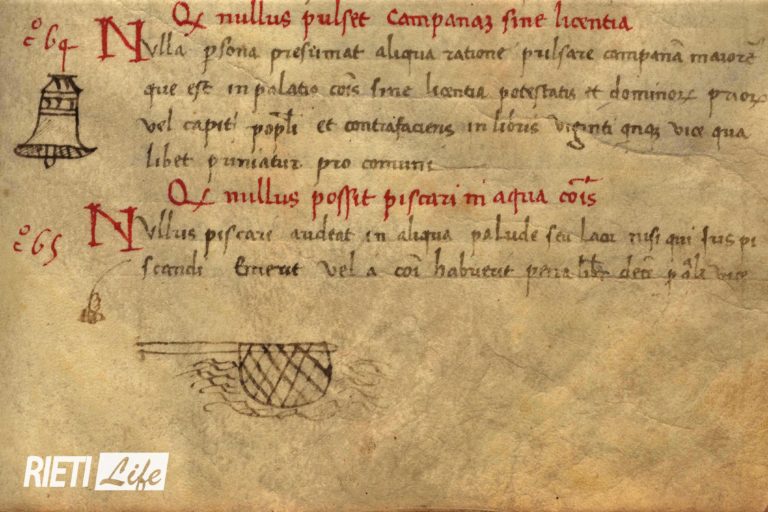 Qd nullus pulset campanaz sine licentia
c° 64 Nulla psona presumat aliqua ratione pulsare campanā maiorē
que est in palatio cōis sine licentia potestatis et dominorꝝ priorꝝ
vel capiti ppli et contrafaciens in libris viginti qnqz vice qua
libet puniatur pro comuni
Qd nullus possit piscari in aqua cōis
c° 65 Nullus piscari audeat in aliqua palude seu lacu nisi qui jus pi
scandi emerit vel a cōi habuerit pena vice
RIETI Life